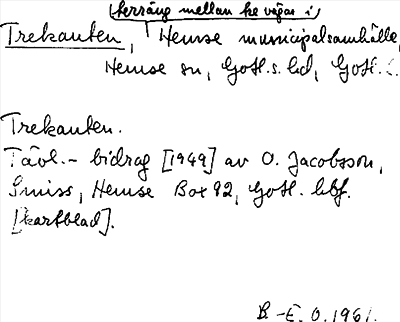 terräng mellan tre vägar i
Trekanten, Hemse municipalsamhälle,
Hemse sn, Gotl. s. hd, Gotl. l.
Trekanten.
Tävl. - bidrag [1949] av O. Jacobsson,
Smiss, Hemse Box 92, Gotl. bbf.
[kartblad].
B.-E. O. 1961.